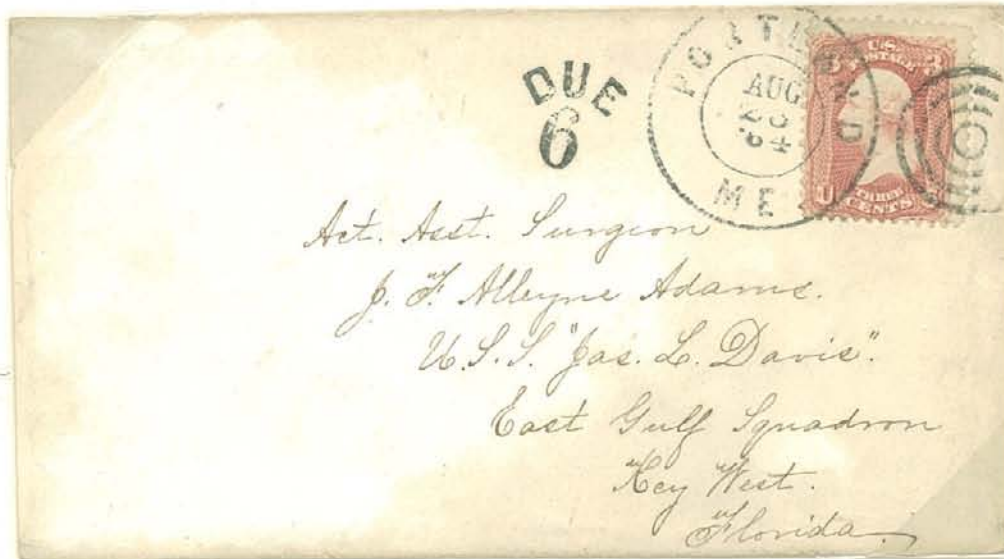 DUE
6
PORTLAND
AUG
ME
U.S.
POSTAGE
3 3
U S
THREE
CENTS
Act. Asst. Surgeon
J. F. Alleyne Adams.
U.S.S. "Jas. L. Davis".
East Gulf Squadron
Key West.
Florida.